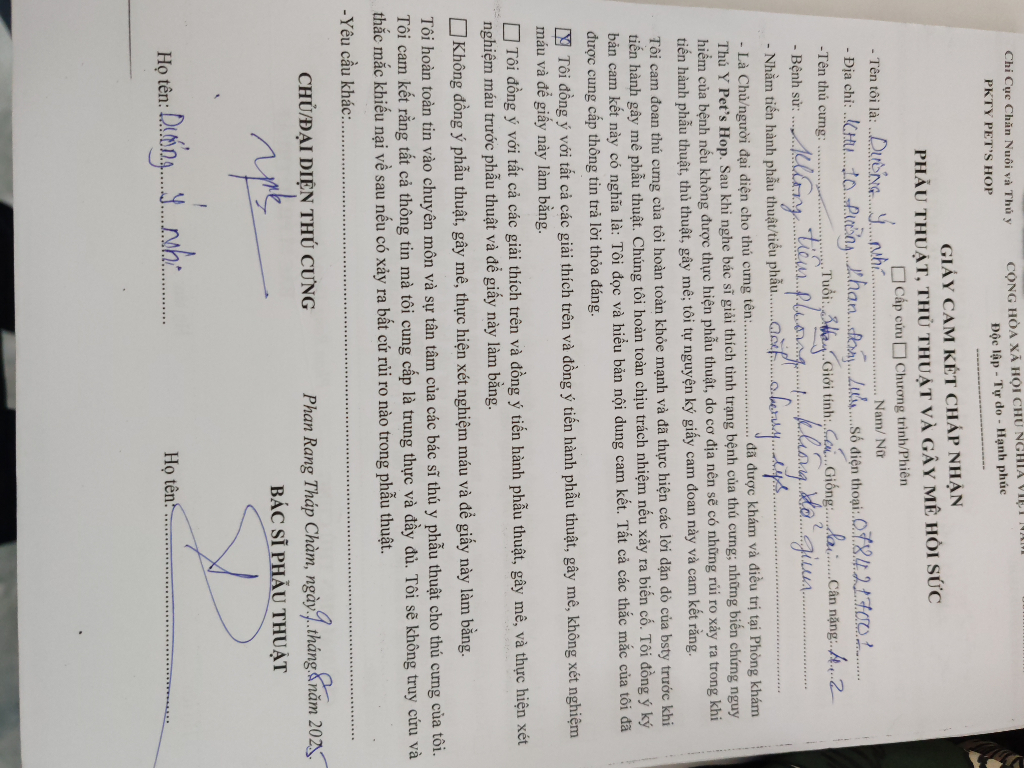 Chi Cục Chăn Nuôi và Thú y
PKTY PET'S HOP
CỘNG HÒA XÃ HỘI CHỦ NGHĨA VIỆT NAM
Độc lập - Tự do - Hạnh phúc
GIẤY CAM KẾT CHẤP NHẬN
PHẪU THUẬT, THỦ THUẬT VÀ GÂY MÊ HỒI SỨC
☐ Cấp cứu ☐ Chương trình/Phiên
- Tên tôi là: Dương Ý Nhi Nam/ Nữ
- Địa chỉ: Khu 10 Phường Phan Số điện thoại: 0784217001
- Tên thú cưng: Tuổi: Giới tính: cái Giống: Cân nặng: 4.2
- Bệnh sử: không tiêm phòng, không xổ giun
- Nhằm tiến hành phẫu thuật/tiểu phẫu
- Là Chủ/người đại diện cho thú cưng tên: đã được khám và điều trị tại Phòng khám
Thú Y Pet's Hop. Sau khi nghe bác sĩ giải thích tình trạng bệnh của thú cưng; những biến chứng nguy
hiểm của bệnh nếu không được thực hiện phẫu thuật, do cơ địa nên sẽ có những rủi ro xảy ra trong khi
tiến hành phẫu thuật, thủ thuật, gây mê; tôi tự nguyện ký giấy cam đoan này và cam kết rằng.
Tôi cam đoan thú cưng của tôi hoàn toàn khỏe mạnh và đã thực hiện các lời dặn dò của bsty trước khi
tiến hành gây mê phẫu thuật. Chúng tôi hoàn toàn chịu trách nhiệm nếu xảy ra biến cố. Tôi đồng ý ký
bản cam kết này có nghĩa là: Tôi đọc và hiểu bản nội dung cam kết. Tất cả các thắc mắc của tôi đã
được cung cấp thông tin trả lời thỏa đáng.
☒ Tôi đồng ý với tất cả các giải thích trên và đồng ý tiến hành phẫu thuật, gây mê, không xét nghiệm
máu và để giấy này làm bằng.
☐ Tôi đồng ý với tất cả các giải thích trên và đồng ý tiến hành phẫu thuật, gây mê, và thực hiện xét
nghiệm máu trước phẫu thuật và để giấy này làm bằng.
☐ Không đồng ý phẫu thuật, gây mê, thực hiện xét nghiệm máu và để giấy này làm bằng.
Tôi hoàn toàn tin vào chuyên môn và sự tân tâm của các bác sĩ thú y phẫu thuật cho thú cưng của tôi.
Tôi cam kết rằng tất cả thông tin mà tôi cung cấp là trung thực và đầy đủ. Tôi sẽ không truy cứu và
thắc mắc khiếu nại về sau nếu có xảy ra bất cứ rủi ro nào trong phẫu thuật.
-Yêu cầu khác:
Phan Rang Tháp Chàm, ngày 9 tháng 8 năm 2025
CHỦ/ĐẠI DIỆN THÚ CƯNG
BÁC SĨ PHẪU THUẬT
Họ tên: Dương Ý Nhi
Họ tên: